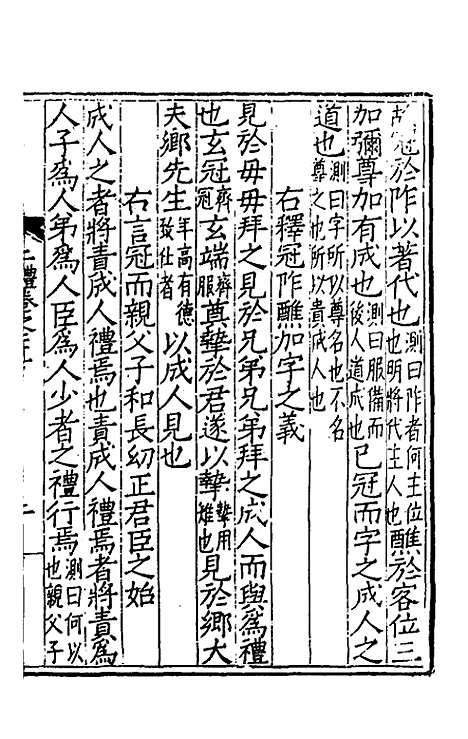 故冠於阼以著代也測曰阼者何主位也明將代主人也醮於客位三
加彌尊加有成也測曰服備而後人道成也已冠而字之成人之
道也測曰字所以尊名也不名尊之也所以貴成人也
右釋冠阼醮加字之義
見於母母拜之見於兄弟兄弟拜之成人而與爲禮
也玄冠齊冠玄端齊服奠摯於君遂以摯摯用雉也見於鄉大
夫鄉先生年高有德致仕者以成人見也
右言冠而親父子和長幼正君臣之始
成人之者將責成人禮焉也責成人禮焉者將責爲
人子爲人弟爲人臣爲人少者之禮行焉測曰何以也親父子
二禮